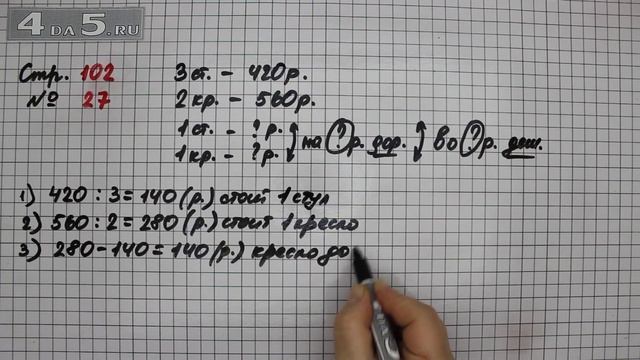 4 ДА 5.RU
Стр. 102
№ 27
3 ст. - 420 р.
2 кр. - 560 р.
1 ст. - ? р.
1 кр. - ? р.
на ? р. дор. во ? р. деш.
1) 420 : 3 = 140 (р.) стоит 1 стул
2) 560 : 2 = 280 (р.) стоит 1 кресло
3) 280 - 140 = 140 (р.) кресло до